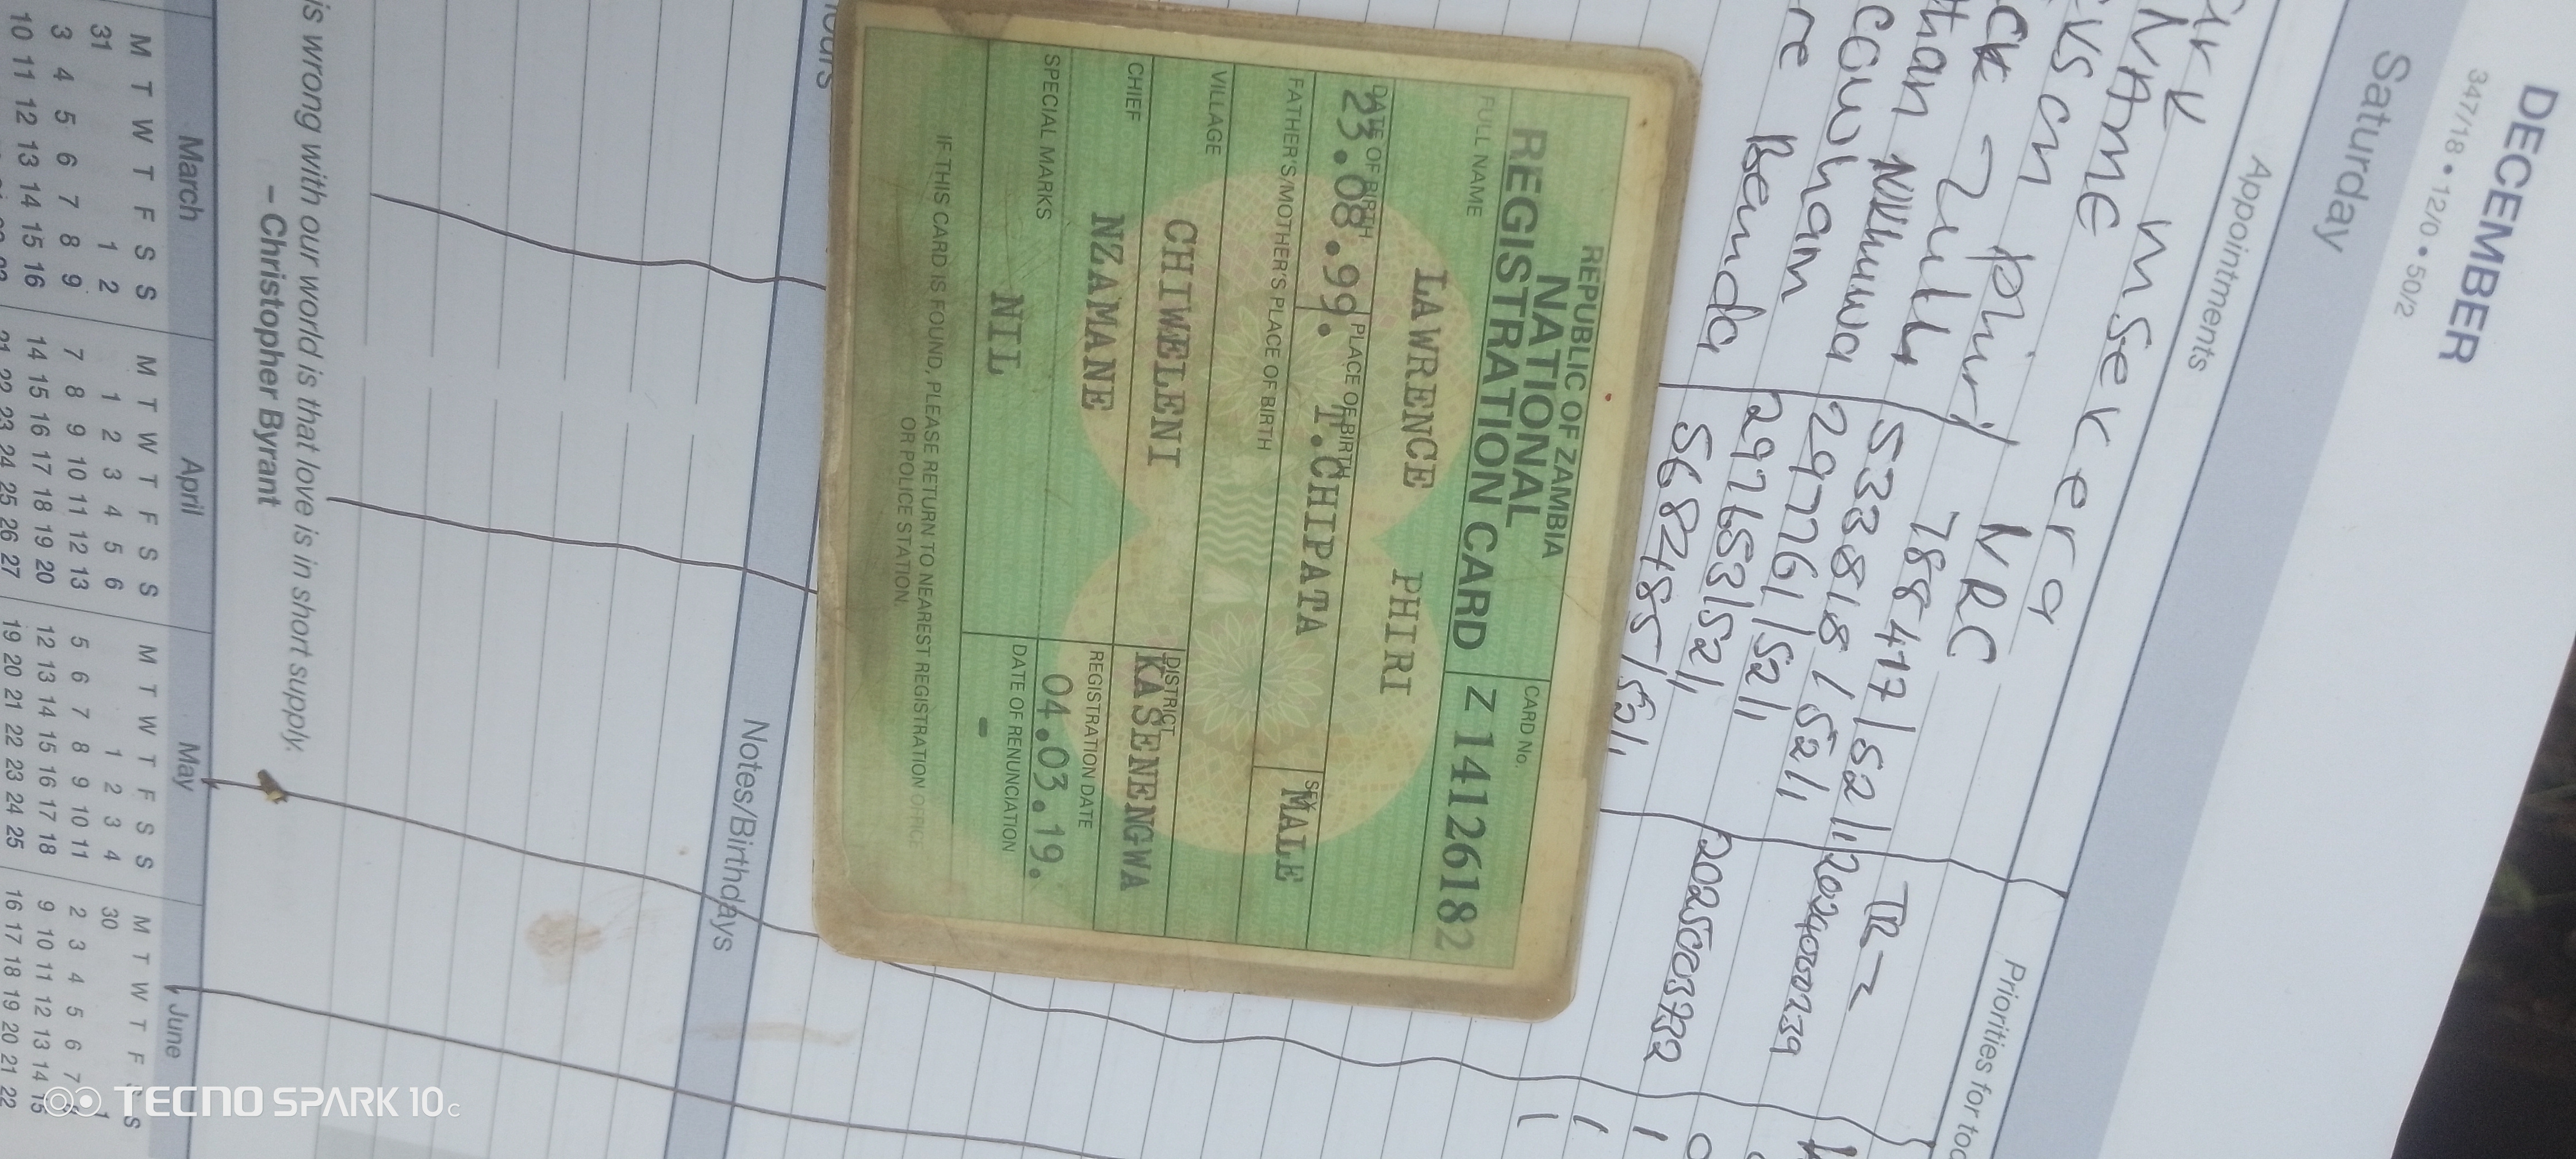 DECEMBER
347/18 • 12/0 • 50/2
Saturday
Appointments
Priorities for
Msekera
NAME NRC TR
phiri 788477/52/1
Zulu 533818/52/1
than 297761/52/1
297653/52/1
re Bemda 568485/52/1
REPUBLIC OF ZAMBIA
NATIONAL
REGISTRATION CARD
CARD No.
Z 14126182
FULL NAME
LAWRENCE PHIRI
DATE OF BIRTH
23.08.99.
PLACE OF BIRTH
T.CHIPATA
SEX
MALE
FATHER'S/MOTHER'S PLACE OF BIRTH
VILLAGE
CHIWELENI
DISTRICT
KASENENGWA
CHIEF
NZAMANE
REGISTRATION DATE
04.03.19.
SPECIAL MARKS
NIL
DATE OF RENUNCIATION
-
IF THIS CARD IS FOUND, PLEASE RETURN TO NEAREST REGISTRATION
OR POLICE STATION.
ours
Notes/Birthdays
is wrong with our world is that love is in short supply.
– Christopher Byrant
March April May June
M T W T F S S M T W T F S S M T W T F S S M T W T F S S
31 1 2 1 2 3 4 5 6 1 2 3 4 30 1
3 4 5 6 7 8 9 7 8 9 10 11 12 13 5 6 7 8 9 10 11 2 3 4 5 6 7
10 11 12 13 14 15 16 14 15 16 17 18 19 20 12 13 14 15 16 17 18 9 10 11 12 13 14 15
21 22 23 24 25 26 27 19 20 21 22 23 24 25 16 17 18 19 20 21 22
TECNO SPARK 10c